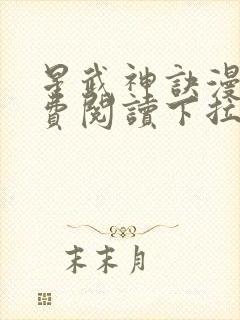 星武神訣漫
費閱讀下拉
末末月